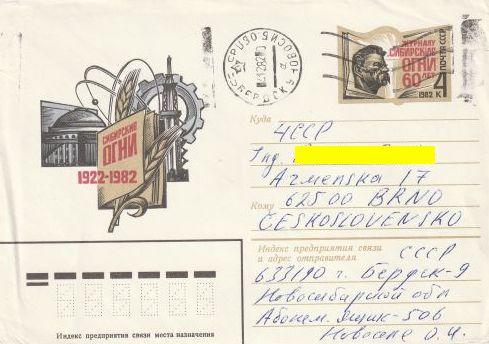 ЖУРНАЛУ
СИБИРСКИЕ
ОГНИ
60 ЛЕТ
ПОЧТА СССР
1982 К 4
СИБИРСКИЕ
ОГНИ
1922-1982
Куда
ЧССР
Армenska 17
Кому 62500 BRNO
ČESKOSLOVENSKO
Индекс предприятия связи
и адрес отправителя
СССР
633190 г. Бердск-9
Новосибирской обл
Абонем. ящик-506
Индекс предприятия связи места назначения